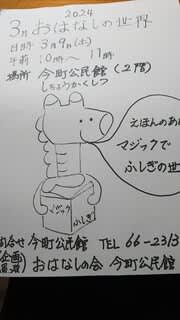 2024
3月 おはなしの世界
日時 3月9日(土)
午前 10時〜 11時
場所 今町公民館 (2階)
しちょうかくしつ
えほんのあ
マジックで
ふしぎの世
マジック
ふしぎ
合せ 今町公民館 TEL 66-2313
企画 おはなしの会 今町公民館